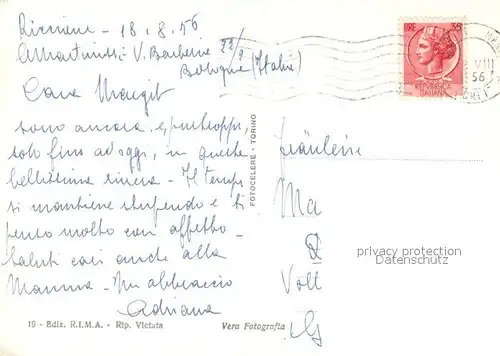 Riccione - 18.8.56
V. Barberia 22/2
Bologna (Italia)
Cara Margit
sono ancora, e purtroppo,
solo fino ad oggi, in questa
bellissima riviera - Il tempo
si mantiene stupendo e ti
penso molto con affetto -
Saluti cari anche alla
Mamma - Un abbraccio
Adriana
19 - Ediz. R.I.M.A. - Rip. Vietata
Vera Fotografia
FOTOCELERE - TORINO
LIRE 35
REPVBBLICA
ITALIANA
VIII
56
Fräulein
Ma
Volt
privacy protection
Datenschutz